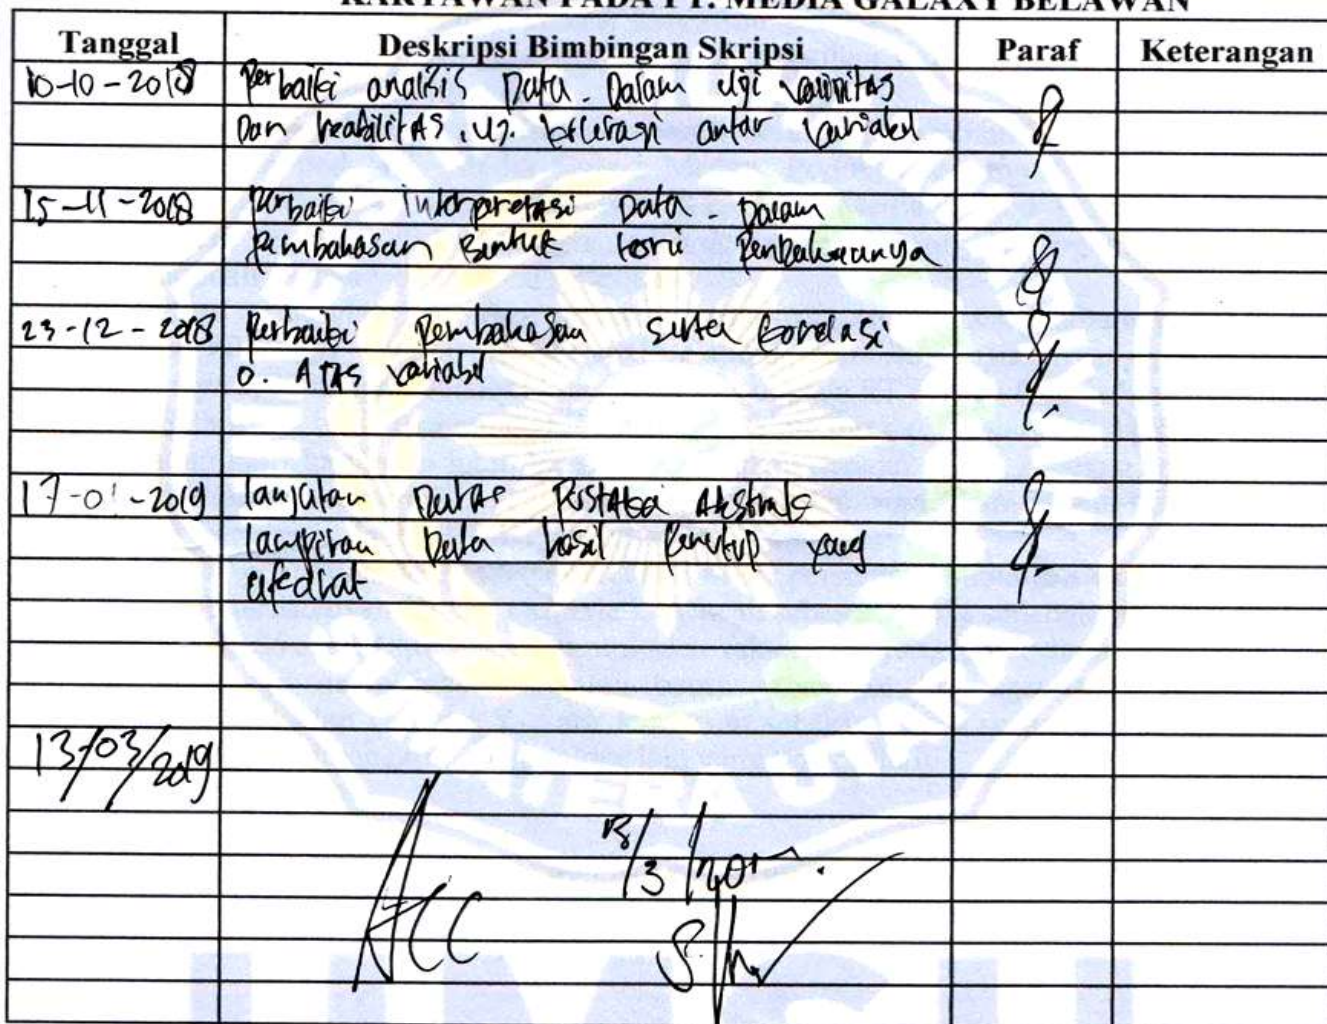 KARYAWAN PADA PT. MEDIA GALAXY BELAWAN
Tanggal Deskripsi Bimbingan Skripsi Paraf Keterangan
10-10-2018 Perbaiki analisis Data. Dalam uji validitas
Dan reabilitas, uji korelasi antar variabel
15-11-2018 Perbaiki interpretasi Data. Dalam
pembahasan bentuk teori
23-12-2018 Perbaiki Pembahasan serta korelasi
variabel
17-01-2019 lanjutan Daftar Pustaka Abstrak
lampiran Data hasil Penutup yang
13/03/2019
ACC
UMSU